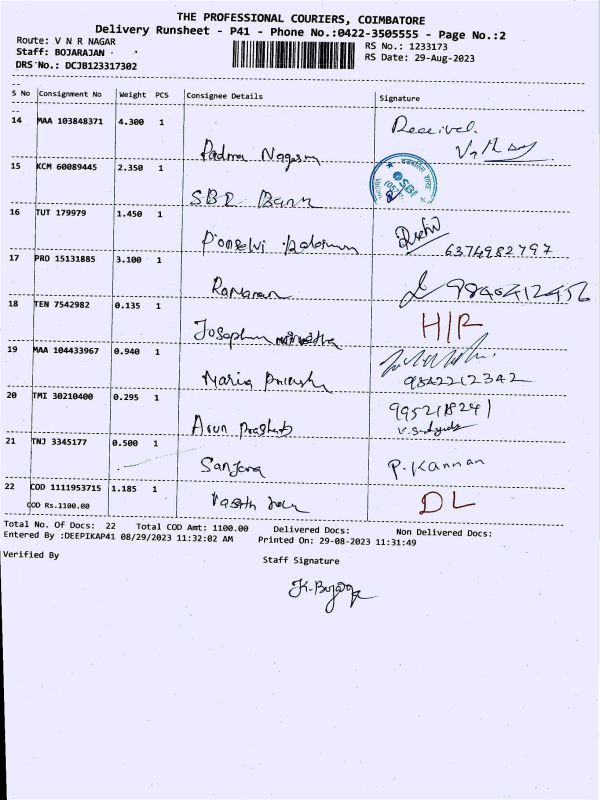 THE PROFESSIONAL COURIERS, COIMBATORE
Delivery Runsheet - P41 - Phone No.:0422-3505555 - Page No.:2
Route: V N R NAGAR
RS No.: 1233173
Staff: BOJARAJAN
RS Date: 29-Aug-2023
DRS No.: DCJB123317302
S No Consignment No Weight PCS Consignee Details Signature
14 MAA 103848371 4.300 1 Received.
Padma
15 KCM 60089445 2.350 1 SBI
SBI Bank
16 TUT 179979 1.450 1
Ponselvi 6374982797
17 PRO 15131885 3.100 1
Ramaran 9840412456
18 TEN 7542982 0.135 1 H/R
Josephin
19 MAA 104433967 0.940 1
Maria 9842212342
20 TMI 30210400 0.295 1 9952118241
Arun Prashanth
21 TNJ 3345177 0.500 1 P. Kannan
Sanjana
22 COD 1111953715 1.185 1 DL
COD Rs.1100.00 Vasanth
Total No. Of Docs: 22 Total COD Amt: 1100.00 Delivered Docs: Non Delivered Docs:
Entered By :DEEPIKAP41 08/29/2023 11:32:02 AM Printed On: 29-08-2023 11:31:49
Verified By Staff Signature
K. Bojaraj